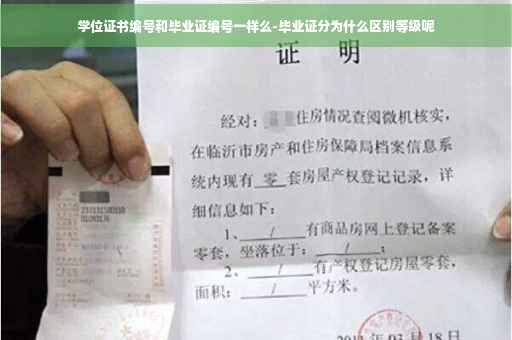 学位证书编号和毕业证编号一样么-毕业证分为什么区别等级呢
证 明
经对：住房情况查阅微机核实，
在临沂市房产和住房保障局档案信息系
统内现有 零 套房屋产权登记记录，详
细信息如下：
1、 / 有商品房网上登记备案
零套，坐落位于： / ；
2、 / 有产权登记房屋零套，
面积： / 平方米。
03月18日